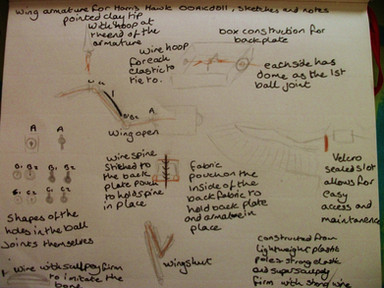 Wing armature for Harris Hawk Ooakdoll, sketches and notes
pointed clay tip
with hoop at
the end of the
armature
wire hoop
for each
elastic to
tie to.
box construction for
backplate
each side has
dome as the 1st
ball joint
A
Wing open
A
B1 B2 B1 B2
C1 C2 C1 C2
Shapes of the
holes in the ball
joints themselves
wire spine
stitched to
the back
plate pouch
to hold spine
in place
fabric
pouch on the
inside of the
back fabric to
hold back plate
and armature in
place
Velcro
sealed slot
allows for
easy
access and
maintenance
wing shut
constructed from
lightweight plastic
poles strong elastic
and super sculpey
firm with strong wire
Wire with sculpey firm
to imitate the
bone